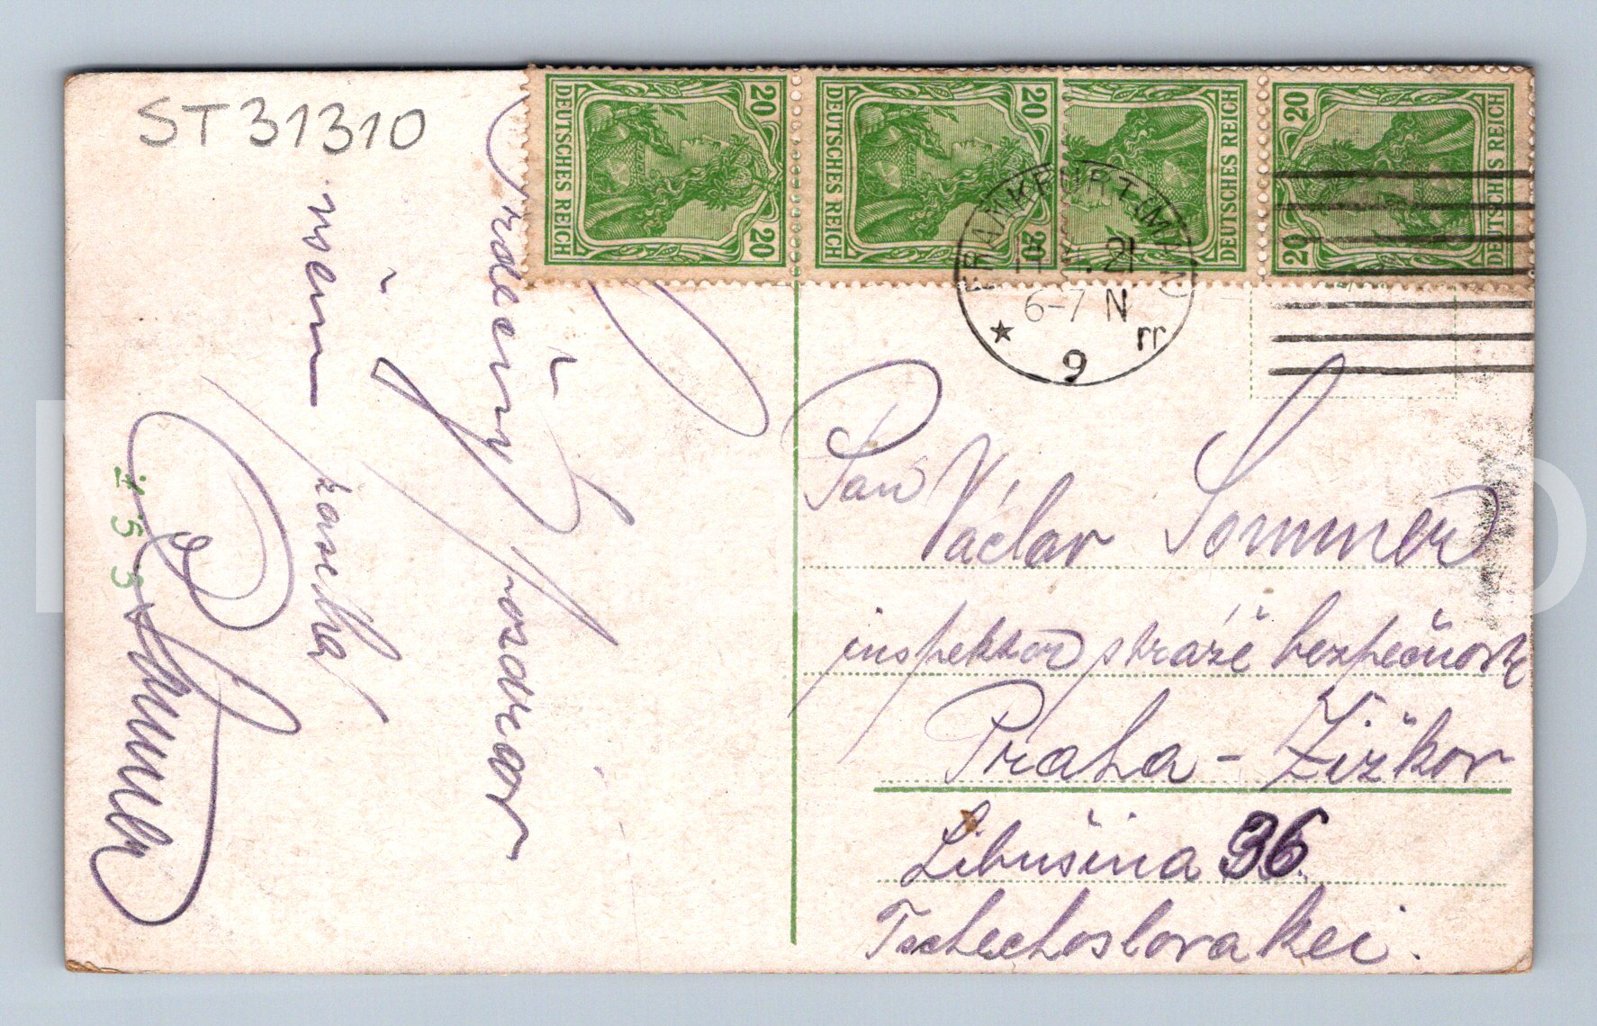 ST 31310
Srdečný pozdrav
všem
zasílá
Sommer
DEUTSCHES REICH 20 20
DEUTSCHES REICH 20 20
DEUTSCHES REICH
DEUTSCHES REICH 20 20
FRANKFURT (MAIN)
21
6-7 N
★ 9 rr
Pan Václav Sommer
inspektor stráže bezpečnosti
Praha - Žižkov
Libušina 36.
Tschechoslovakei.